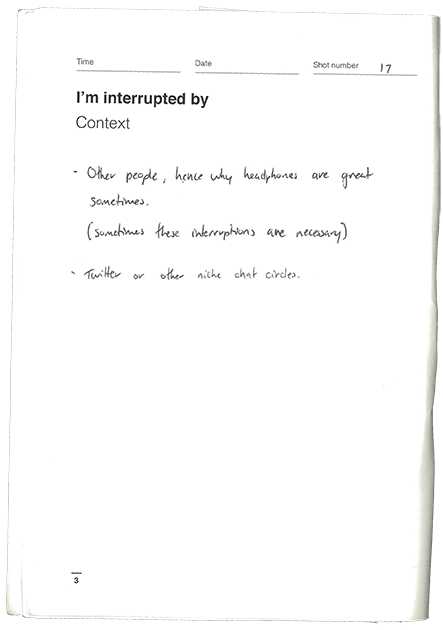 Time Date Shot number 17
I'm interrupted by
Context
- Other people, hence why headphones are great
sometimes.
(sometimes these interruptions are necessary)
- Twitter or other niche chat circles.
3